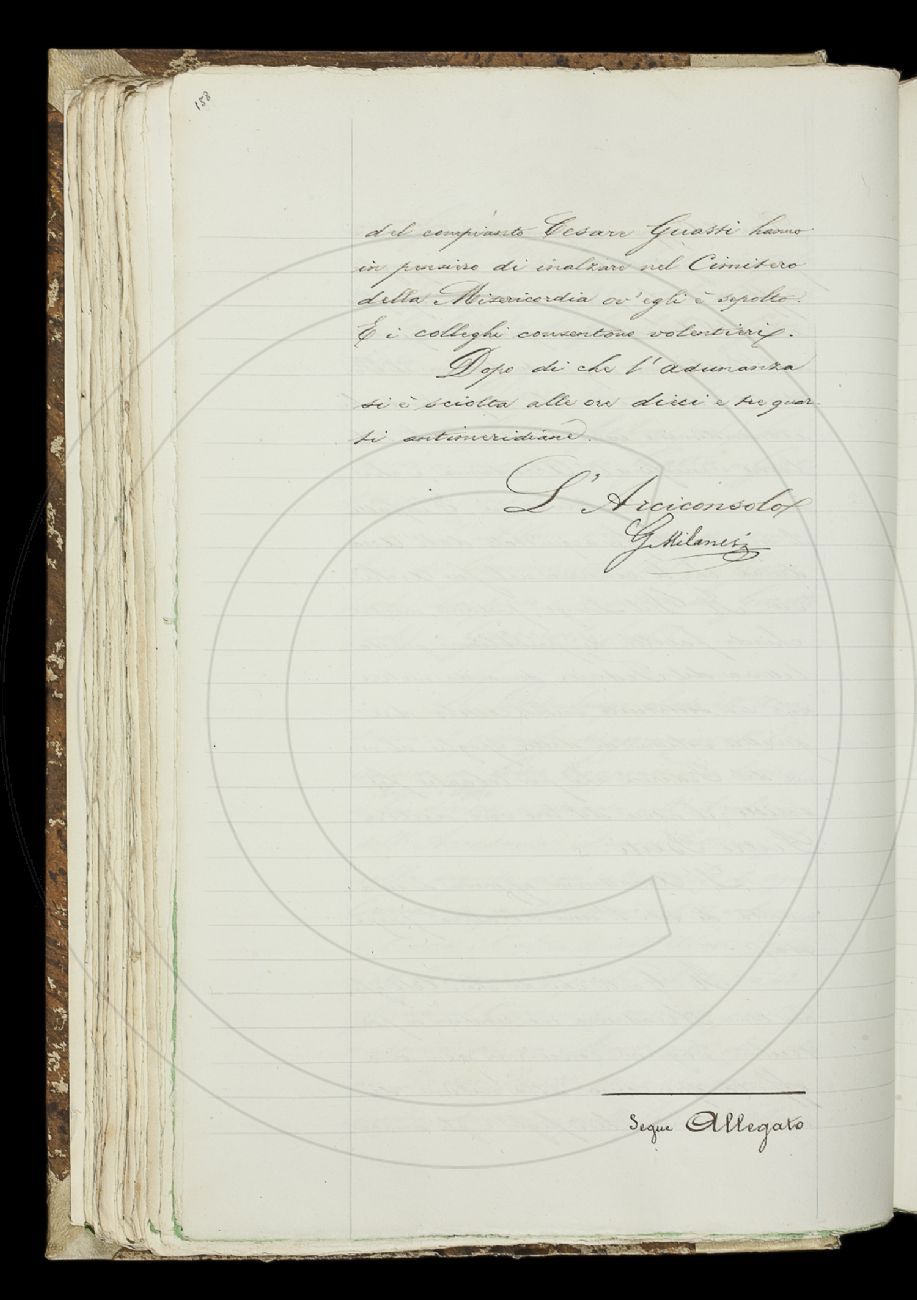 158
del compianto Cesare Guasti hanno
in pensiero di inalzare nel Cimitero
della Misericordia ov' egli è sepolto.
E i colleghi consentono volentieri.
Dopo di che l' adunanza
si è sciolta alle ore dieci e tre quar-
ti antimeridiane.
L' Arciconsolo
G Milanesi
Segue Allegato